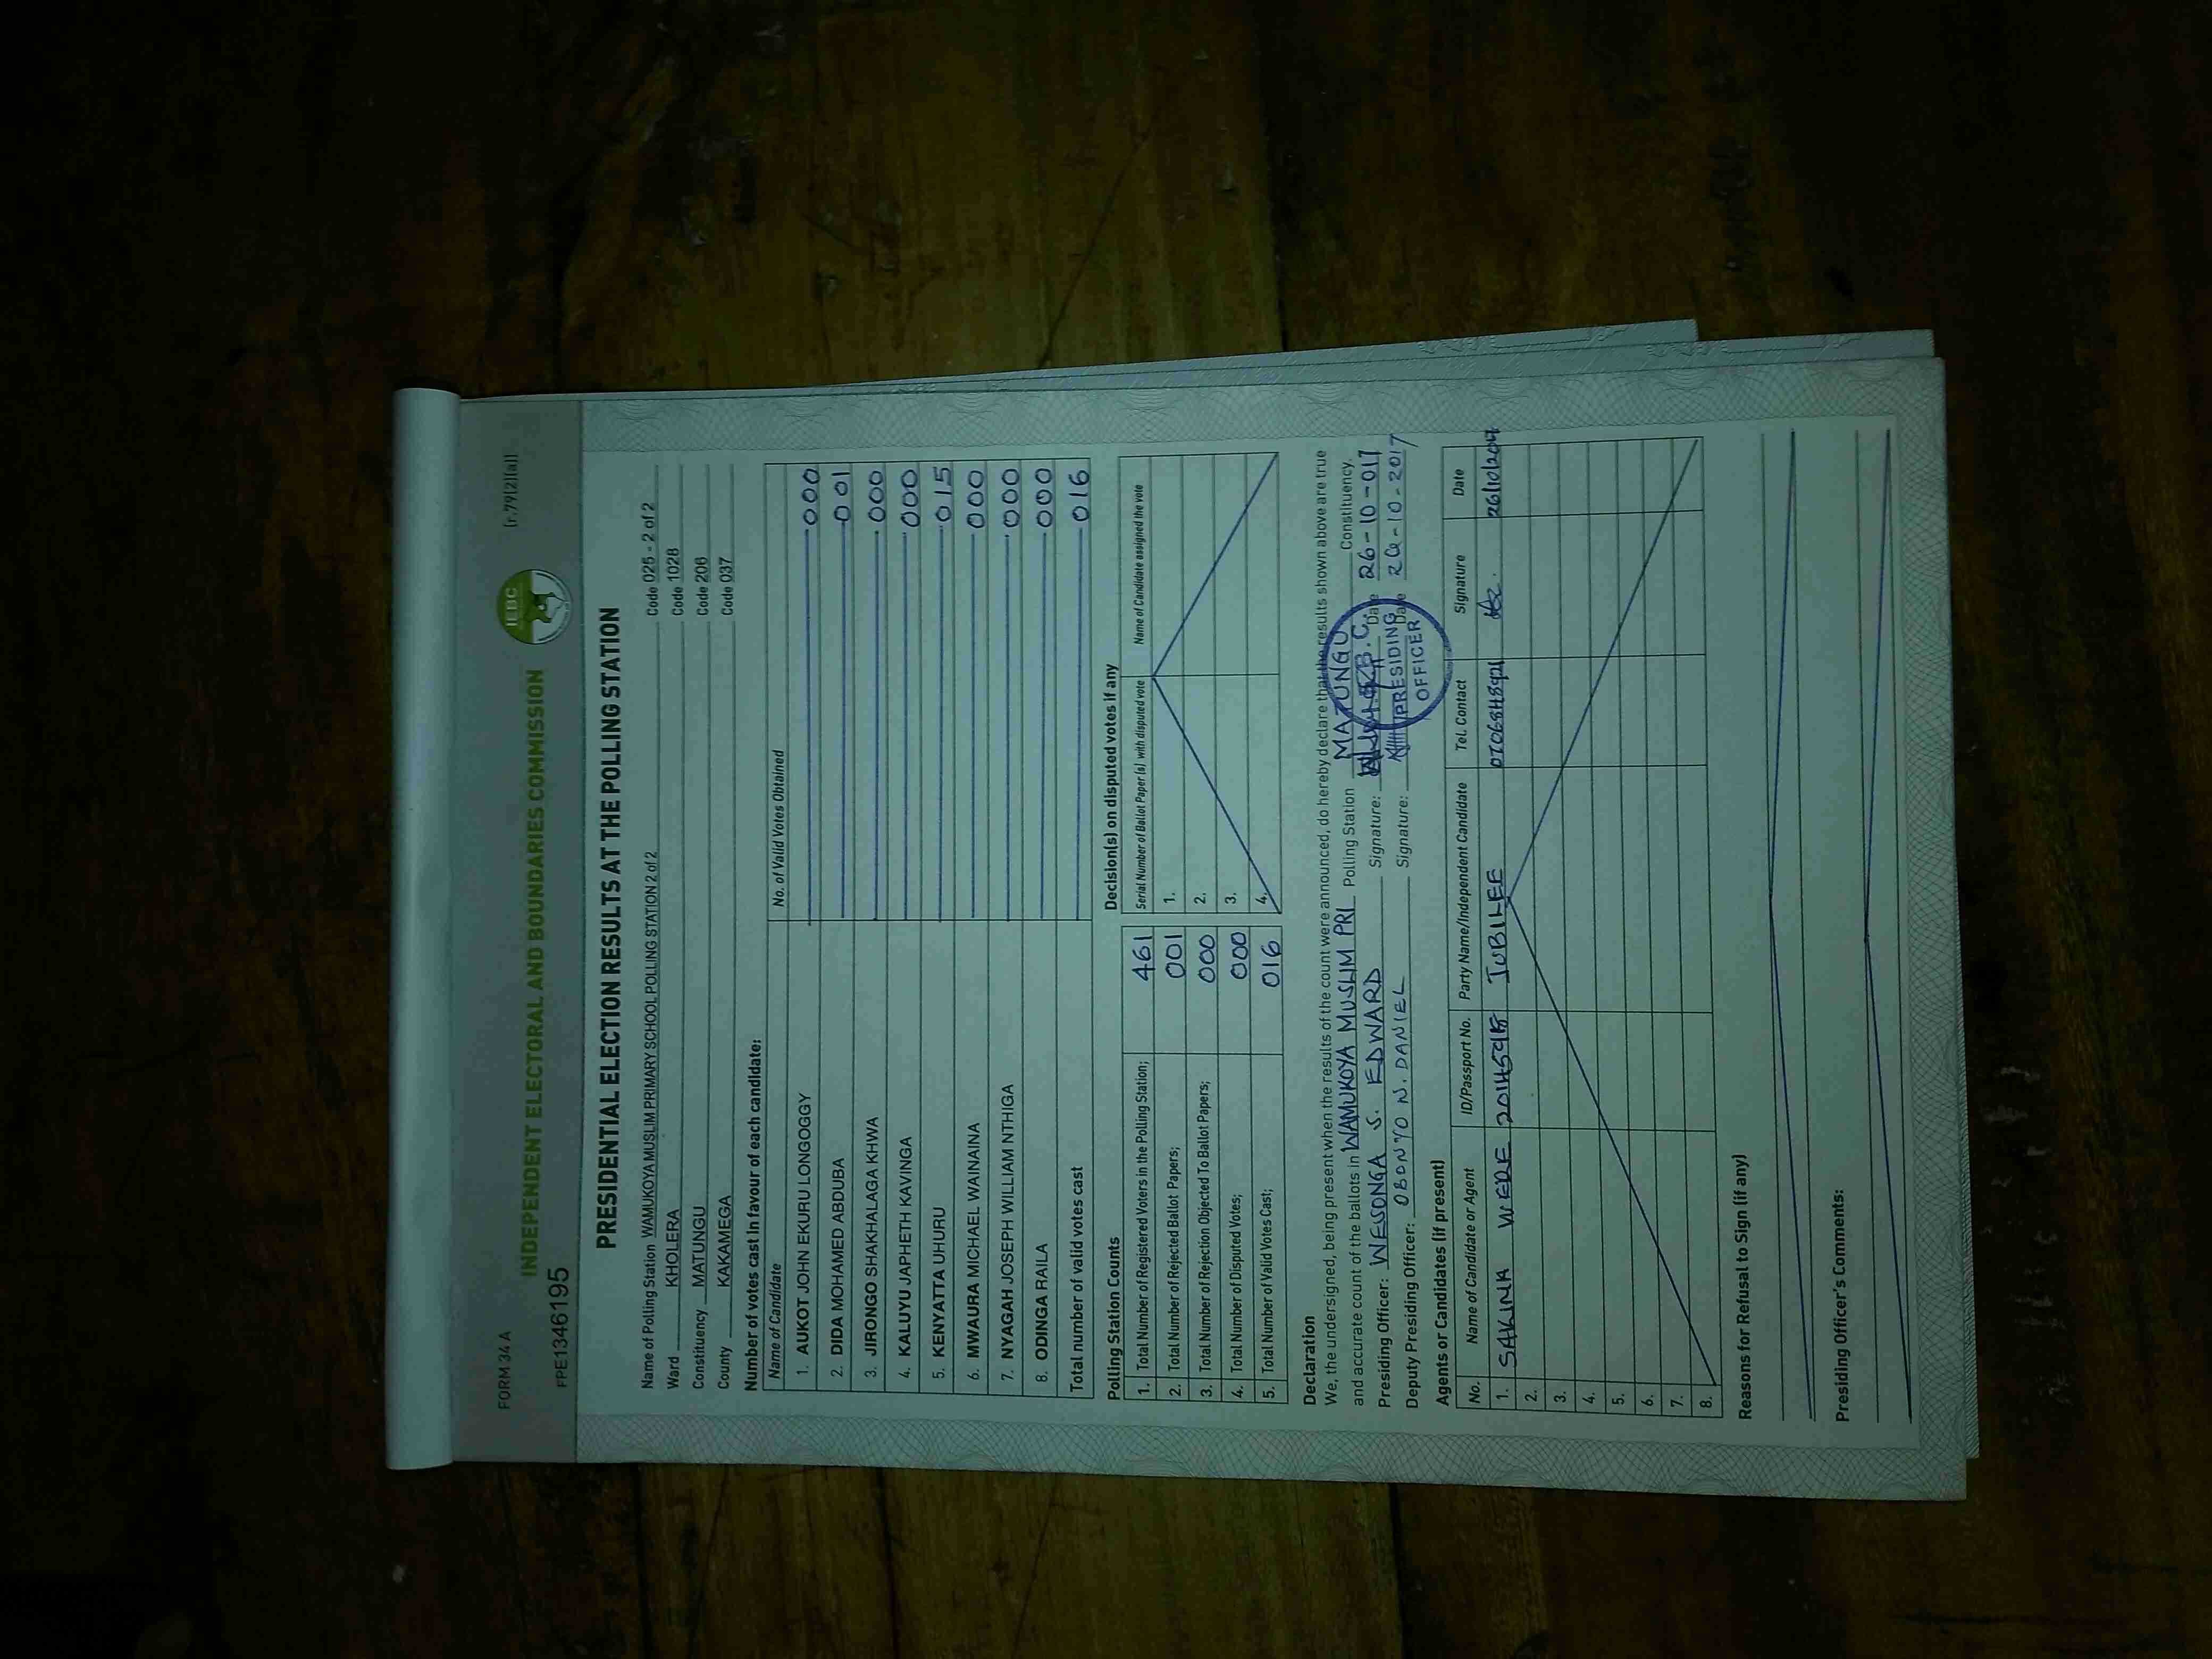 FORM 34 A [r.79[2][a]]
INDEPENDENT ELECTORAL AND BOUNDARIES COMMISSION
IEBC
FPE1346195
PRESIDENTIAL ELECTION RESULTS AT THE POLLING STATION
Name of Polling Station WAMUKOYA MUSLIM PRIMARY SCHOOL POLLING STATION 2 of 2 Code 025 - 2 of 2
Ward KHOLERA Code 1028
Constituency MATUNGU Code 206
County KAKAMEGA Code 037
Number of votes cast in favour of each candidate:
Name of Candidate No. of Valid Votes Obtained
1. AUKOT JOHN EKURU LONGOGGY 000
2. DIDA MOHAMED ABDUBA 001
3. JIRONGO SHAKHALAGA KHWA 000
4. KALUYU JAPHETH KAVINGA 000
5. KENYATTA UHURU 015
6. MWAURA MICHAEL WAINAINA 000
7. NYAGAH JOSEPH WILLIAM NTHIGA 000
8. ODINGA RAILA 000
Total number of valid votes cast 016
Polling Station Counts
1. Total Number of Registered Voters in the Polling Station; 461
2. Total Number of Rejected Ballot Papers; 001
3. Total Number of Rejection Objected To Ballot Papers; 000
4. Total Number of Disputed Votes; 000
5. Total Number of Valid Votes Cast; 016
Decision(s) on disputed votes if any
Serial Number of Ballot Paper (s) with disputed vote Name of Candidate assigned the vote
1.
2.
3.
4.
Declaration
We, the undersigned, being present when the results of the count were announced, do hereby declare that the results shown above are true
and accurate count of the ballots in WAMUKOYA MUSLIM PRI Polling Station MATUNGU Constituency.
Presiding Officer: WESONGA S. EDWARD Signature: Date 26-10-017
Deputy Presiding Officer: OBONYO N. DANIEL Signature: Date 26-10-2017
PRESIDING
OFFICER
Agents or Candidates (if present)
No. Name of Candidate or Agent ID/Passport No. Party Name/Independent Candidate Tel. Contact Signature Date
1. SAKINA WERE JUBILEE
2.
3.
4.
5.
6.
7.
8.
Reasons for Refusal to Sign (if any)
Presiding Officer's Comments: